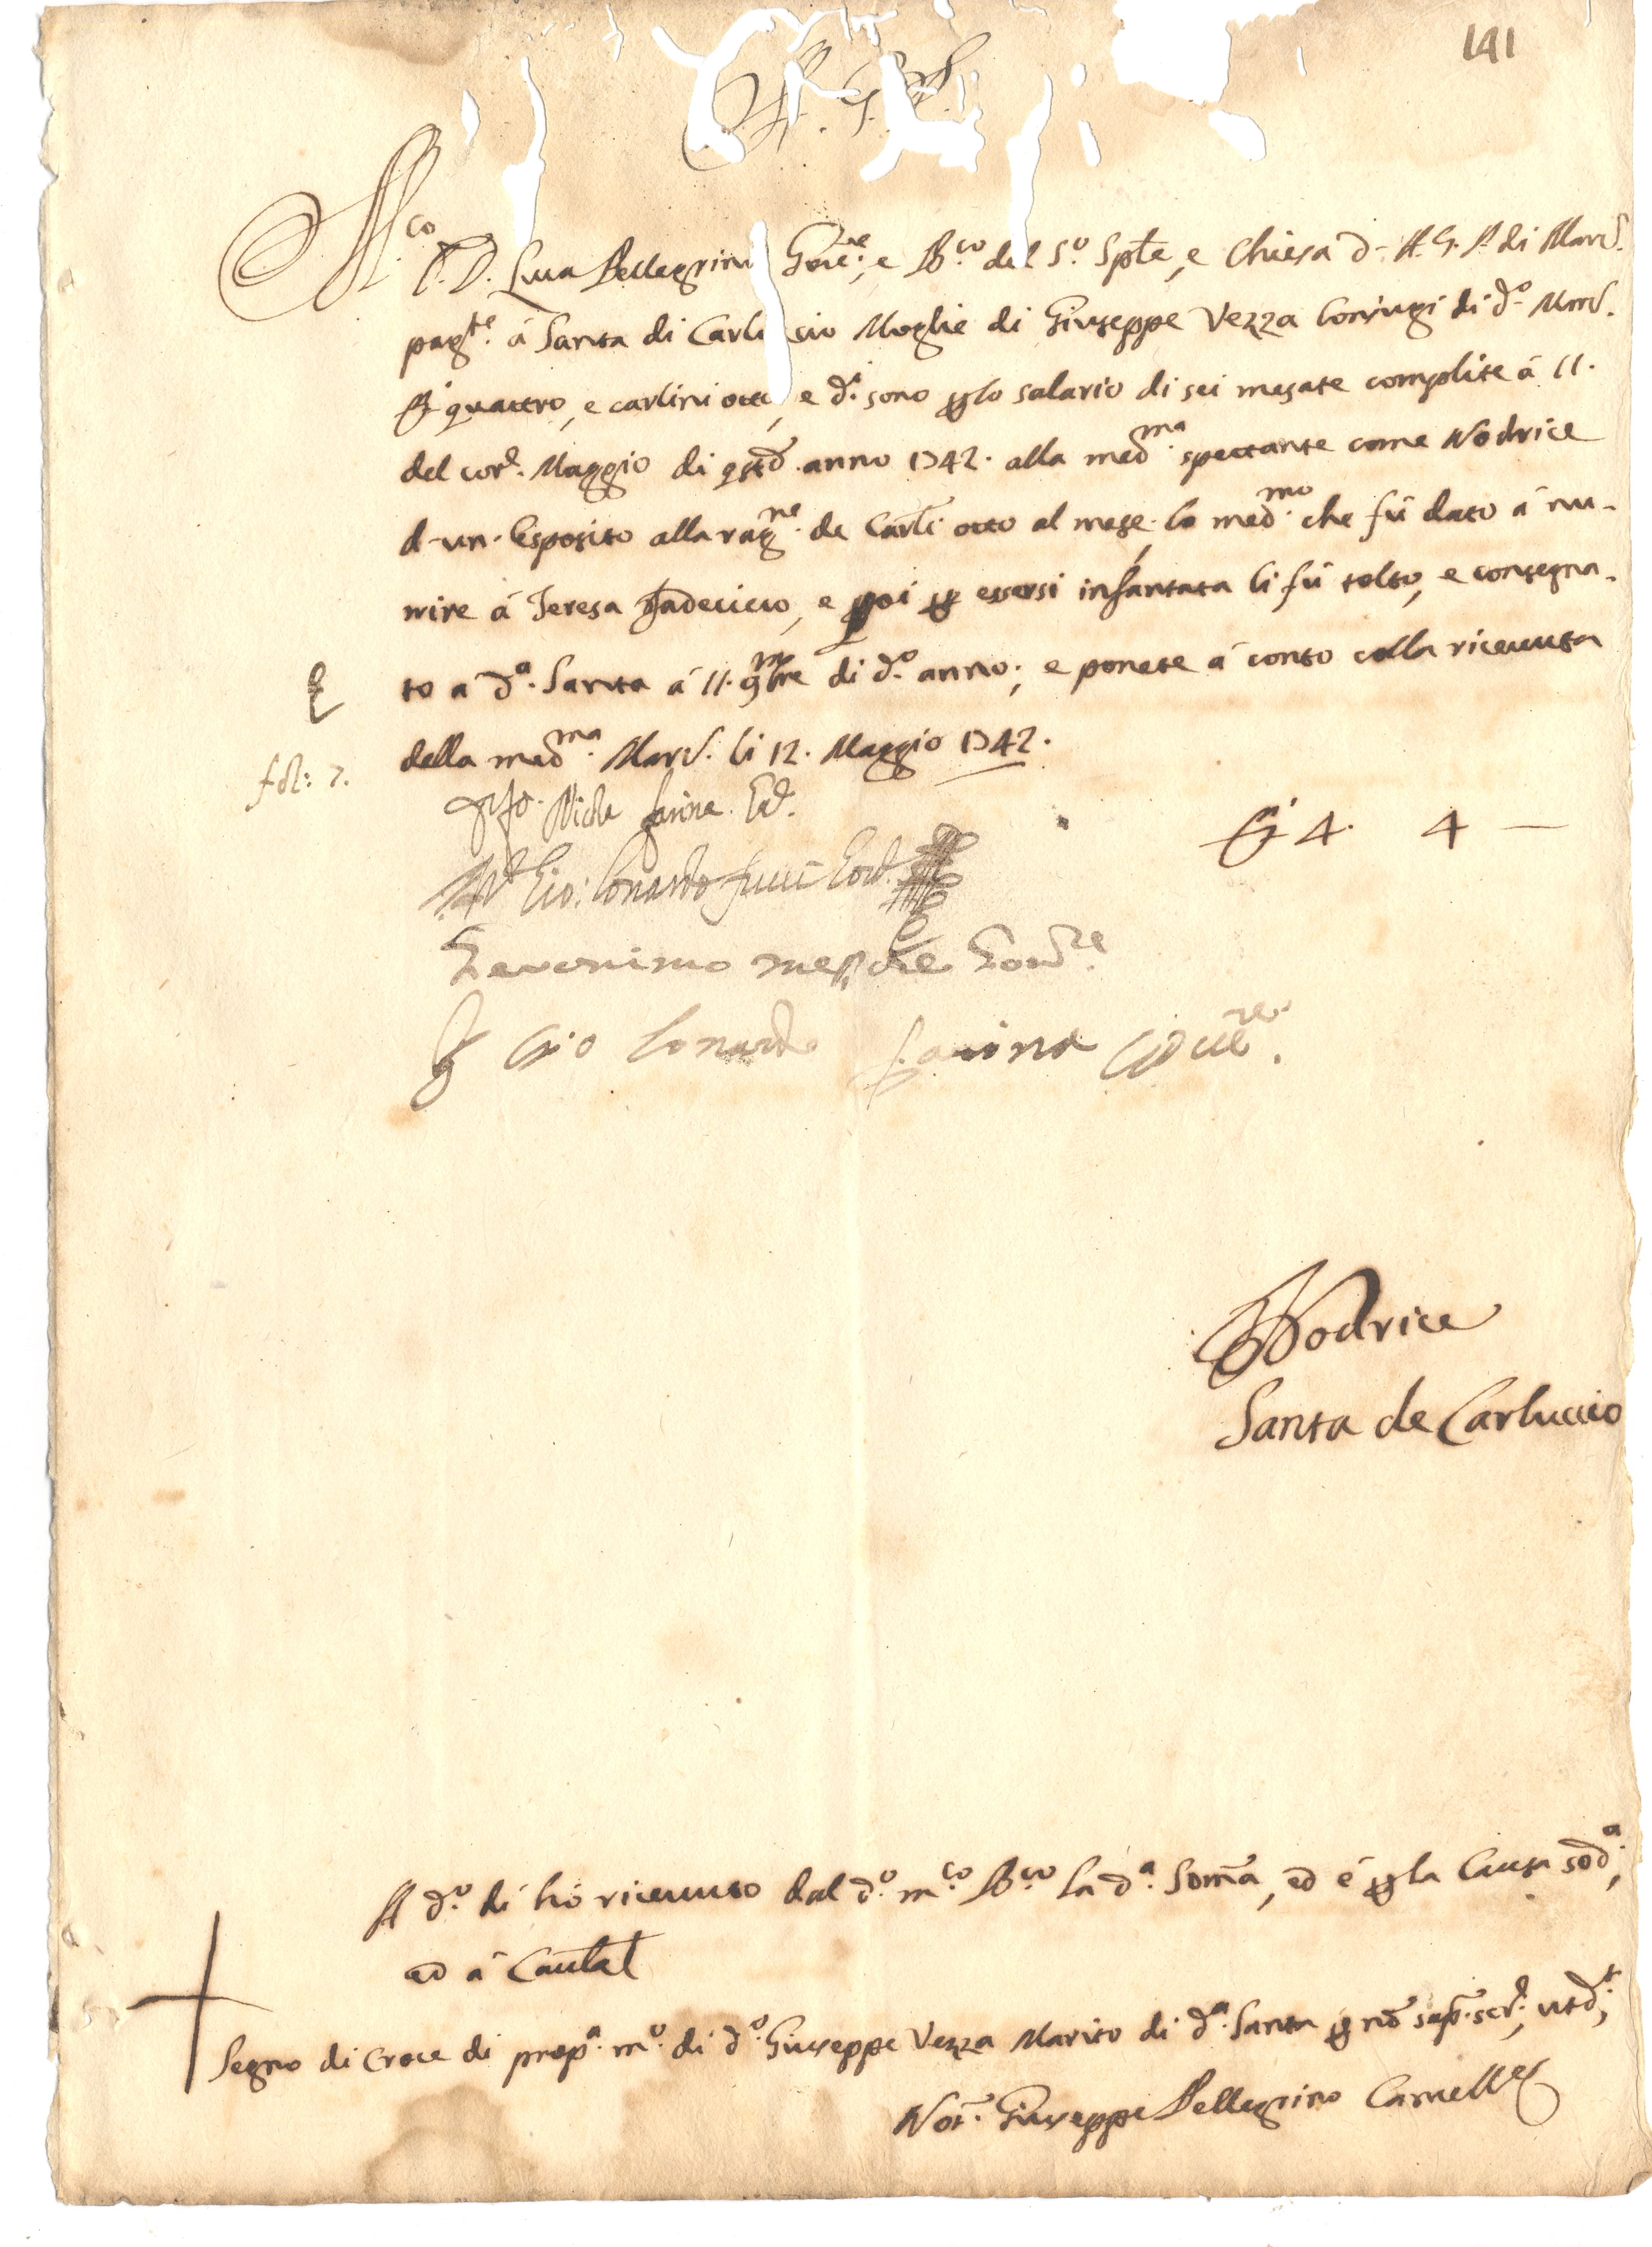 141
A. G. P.
M.co
P. D. Luca Pellegrini Gov.re, e B.co del S.o Sple, e Chiesa d- A. G. P. di Mard.
pag.te á Santa di Carluccio Moglie di Giuseppe Vezza Coniugi di d.o Mard.
D.i quattro, e carlini otto, e d.i sono p lo salario di sei mesate complite á 11.
del cor.e Maggio di qstõ anno 1742. alla med.ma spettante come Nodrice
d-un- Esposito alla rag.ne de Carli otto al mese, lo med.mo che fú dato á nu-
trire á Teresa Tadeuccio, e poi p essersi infantata li fú tolto, e consegna-
to á d.a Santa á 11. 9mbre di d.o anno; e ponete á conto colla riceuuta
della med.ma Mard. li 12. Maggio 1742.
fol: 7.
D.i 4. 4 —
Gio: Lonardo Gov.
Geronimo Gov.re
Gio Lonardo Farina Gov.re
Nodrice
Santa de Carluccio
A d.o dí hó riceuuto dal d.o m.co B.co la d.a Som̃a, ed é p la Causa sod.a,
ed á Cautel
Segno di Croce di prop.a m.o di d.o Giuseppe Vezza Marito di d.a Santa p nõ sap. scr.e, ut d.r,
Not. Giuseppe Pellegrino Cancell.e